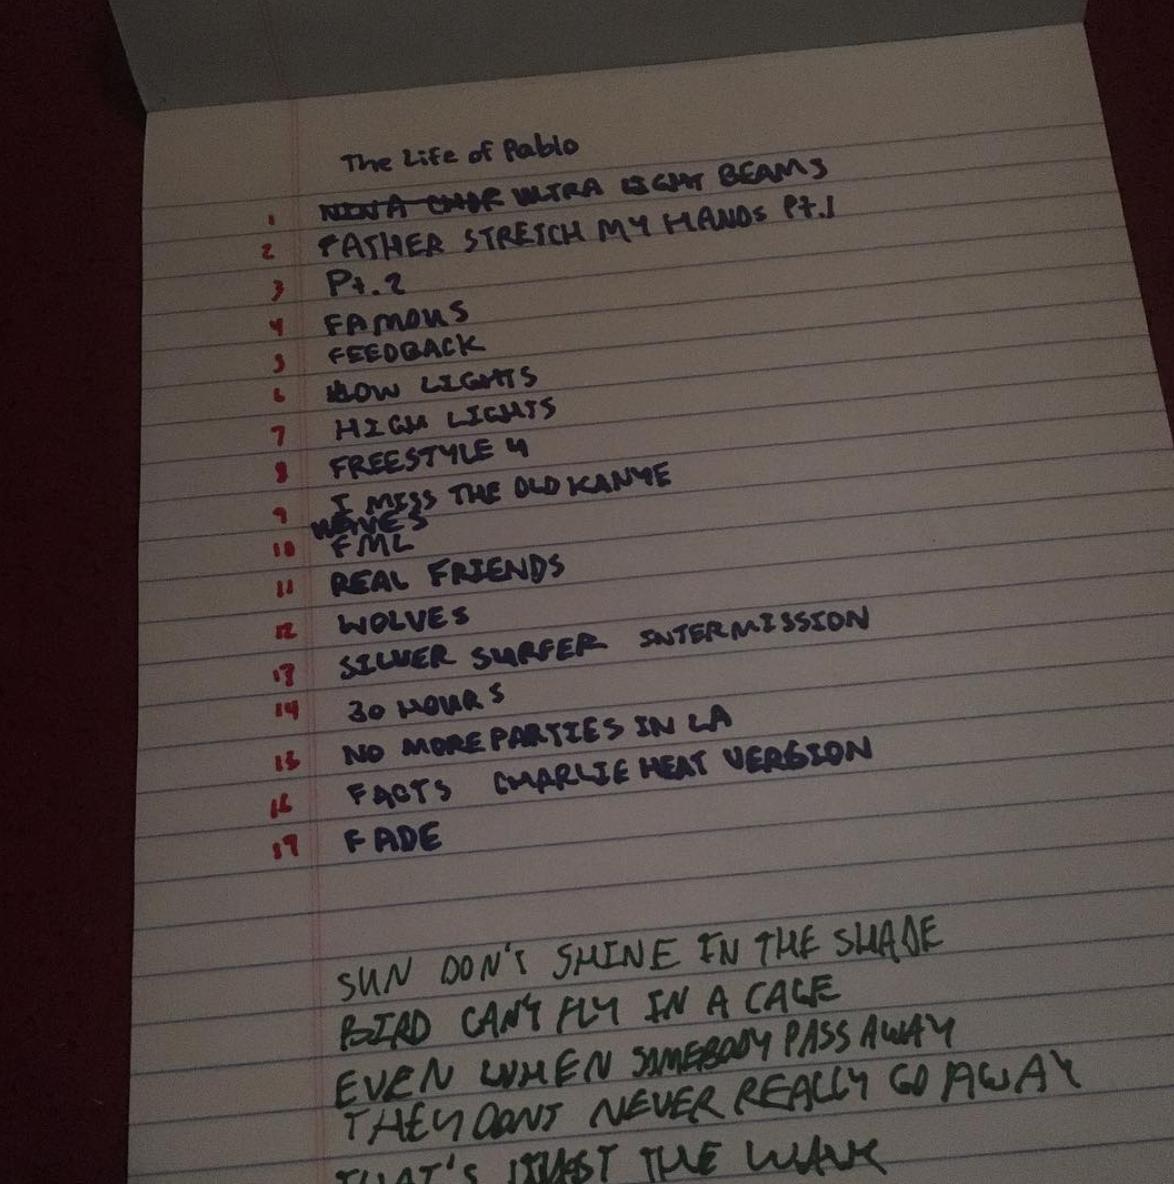 The Life of Pablo
1 NINA CHOR ULTRA LIGHT BEAMS
2 FATHER STRETCH MY HANDS Pt.1
3 Pt.2
4 FAMOUS
5 FEEDBACK
6 LOW LIGHTS
7 HIGH LIGHTS
8 FREESTYLE 4
9 I MISS THE OLD KANYE
WAVES
10 FML
11 REAL FRIENDS
12 WOLVES
13 SILVER SURFER INTERMISSION
14 30 HOURS
15 NO MORE PARTIES IN LA
16 FACTS CHARLIE HEAT VERSION
17 FADE
SUN DON'T SHINE IN THE SHADE
BIRD CAN'T FLY IN A CAGE
EVEN WHEN SOMEBODY PASS AWAY
THEY DONT NEVER REALLY GO AWAY
THAT'S JUST THE WAVE